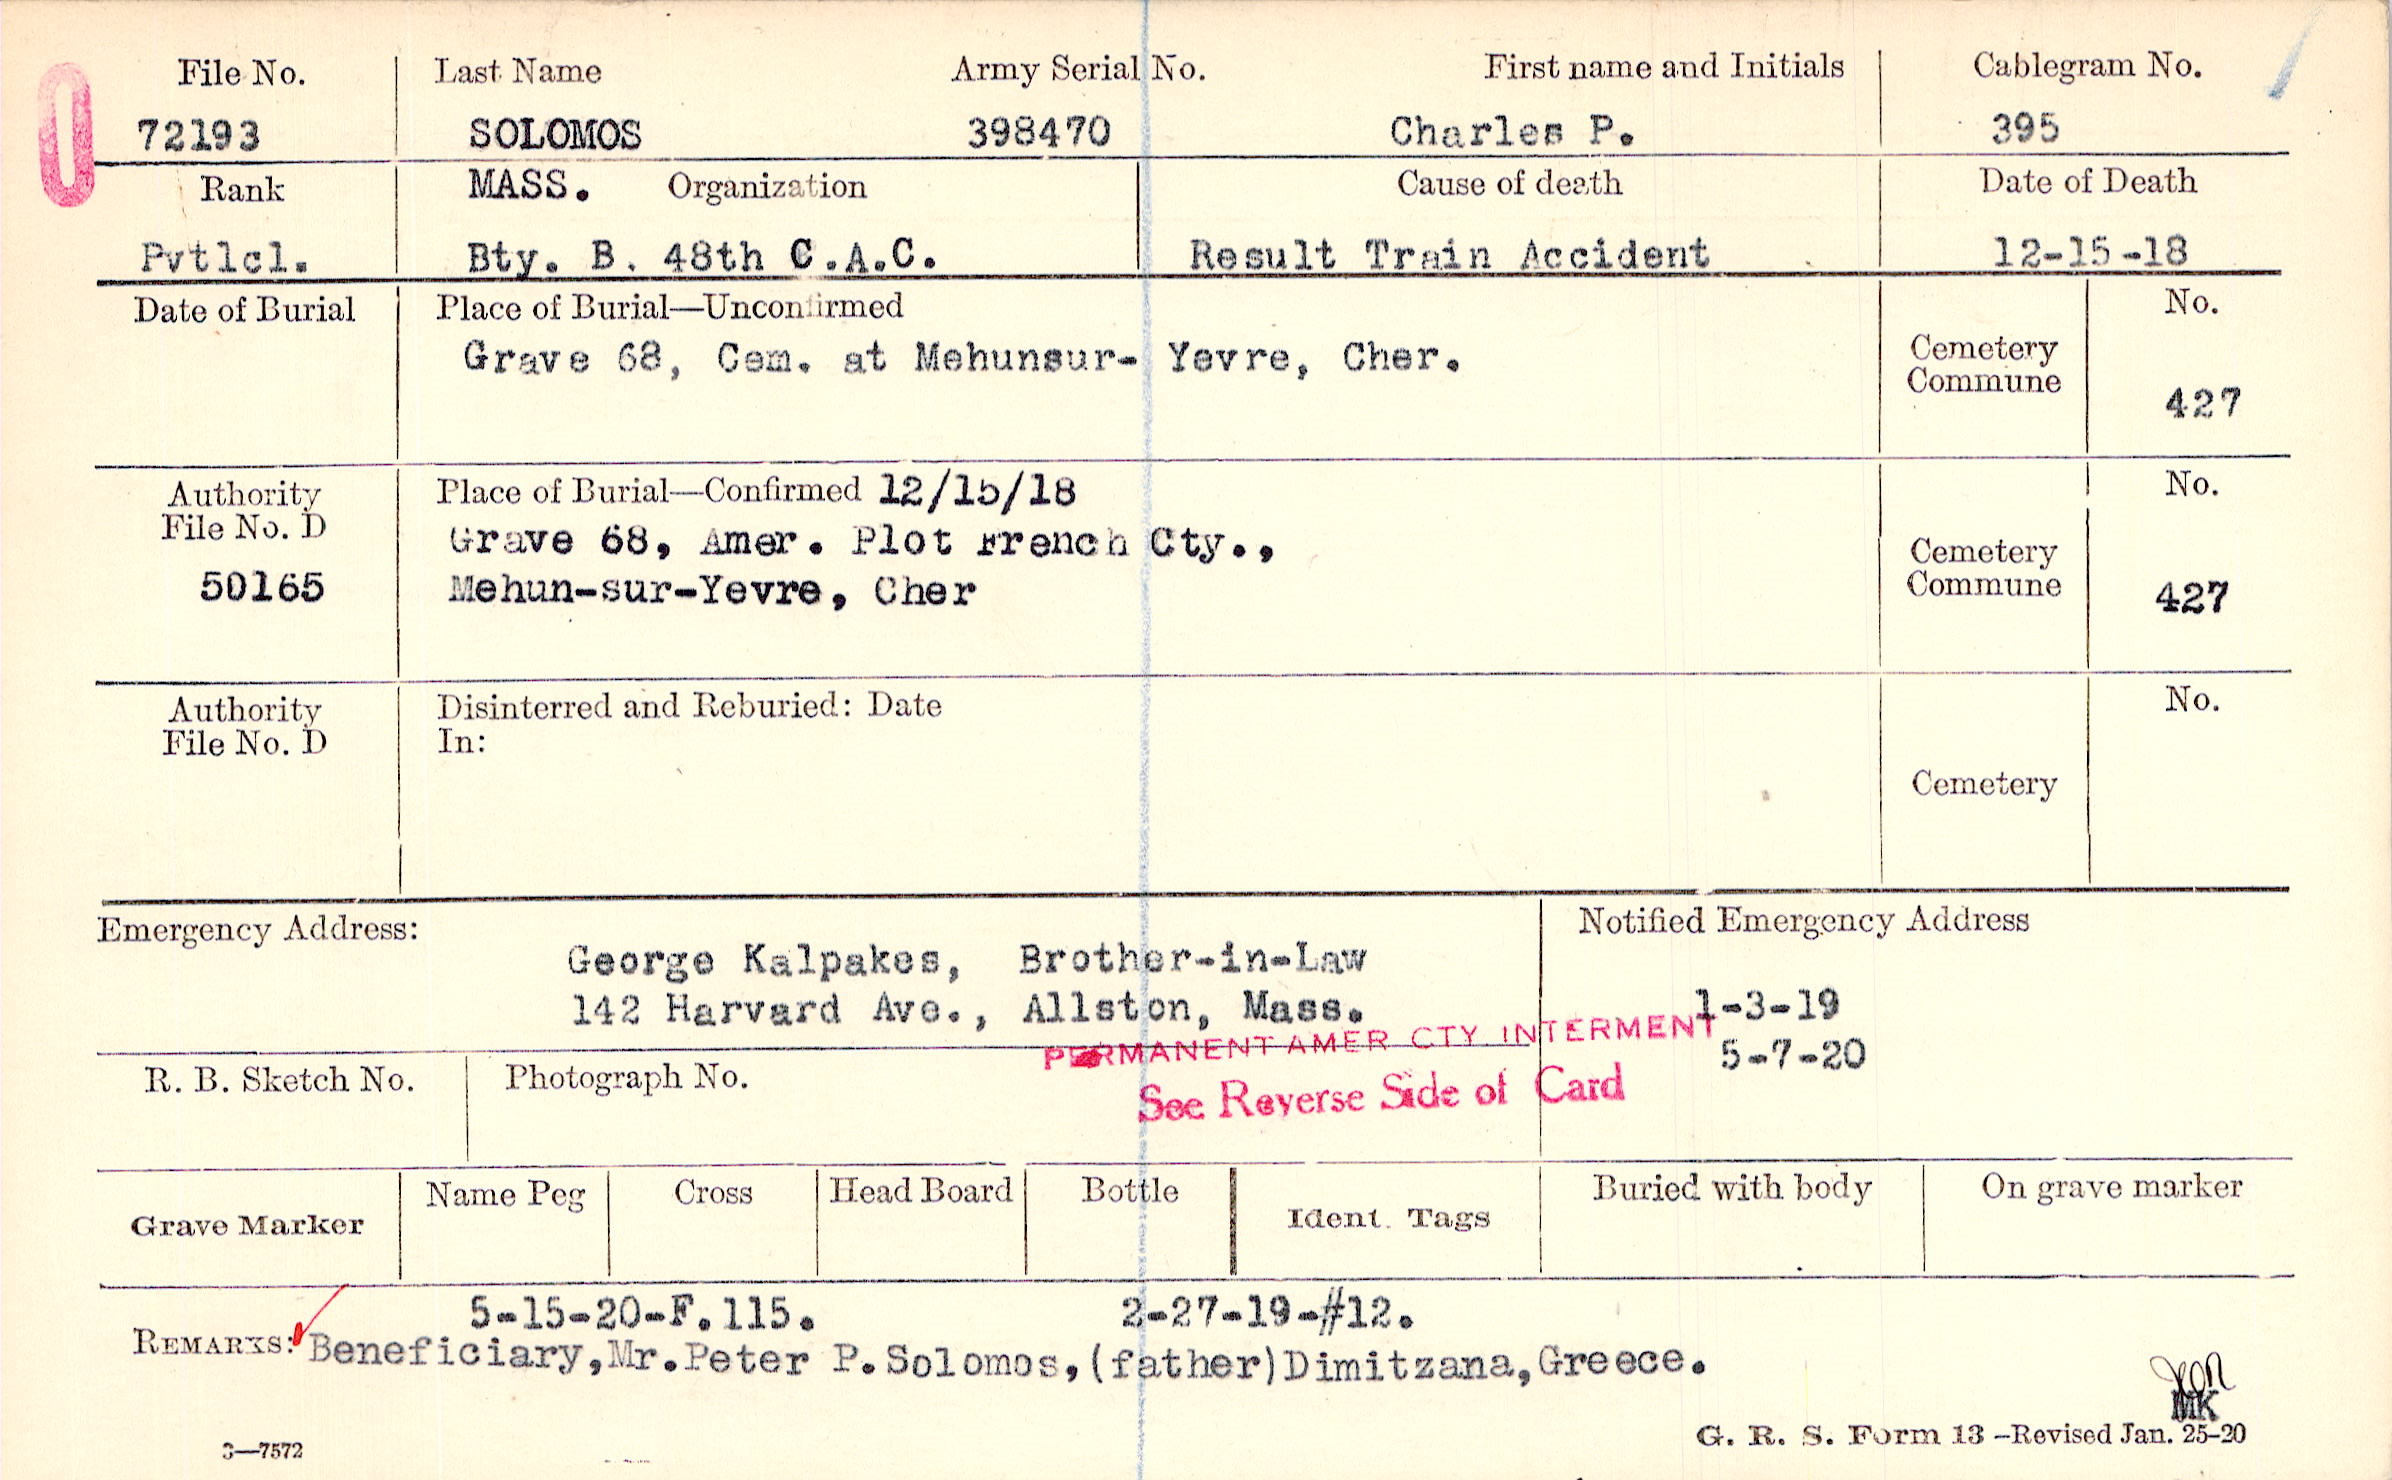 File No. Last Name Army Serial No. First name and Initials Cablegram No.
72193 SOLOMOS 398470 Charles P. 395
Rank MASS. Organization Cause of death Date of Death
Pvt1cl. Bty. B. 48th C.A.C. Result Train Accident 12-15-18
Date of Burial Place of Burial—Unconfirmed No.
Grave 68, Cem. at Mehunsur- Yevre, Cher. Cemetery
Commune
427
Authority Place of Burial—Confirmed 12/15/18 No.
File No. D Grave 68, Amer. Plot French Cty.,
Cemetery
50165 Mehun-sur-Yevre, Cher Commune 427
Authority Disinterred and Reburied: Date No.
File No. D In:
Cemetery
Emergency Address: Notified Emergency Address
George Kalpakes, Brother-in-Law
142 Harvard Ave., Allston, Mass. 1-3-19
PERMANENT AMER CTY INTERMENT
5-7-20
R. B. Sketch No. Photograph No.
See Reverse Side of Card
Grave Marker Name Peg Cross Head Board Bottle Ident. Tags Buried with body On grave marker
5-15-20-F.115. 2-27-19-#12.
REMARKS: Beneficiary,Mr.Peter P.Solomos,(father)Dimitzana,Greece.
MK
3—7572 G. R. S. Form 13 –Revised Jan. 25-20